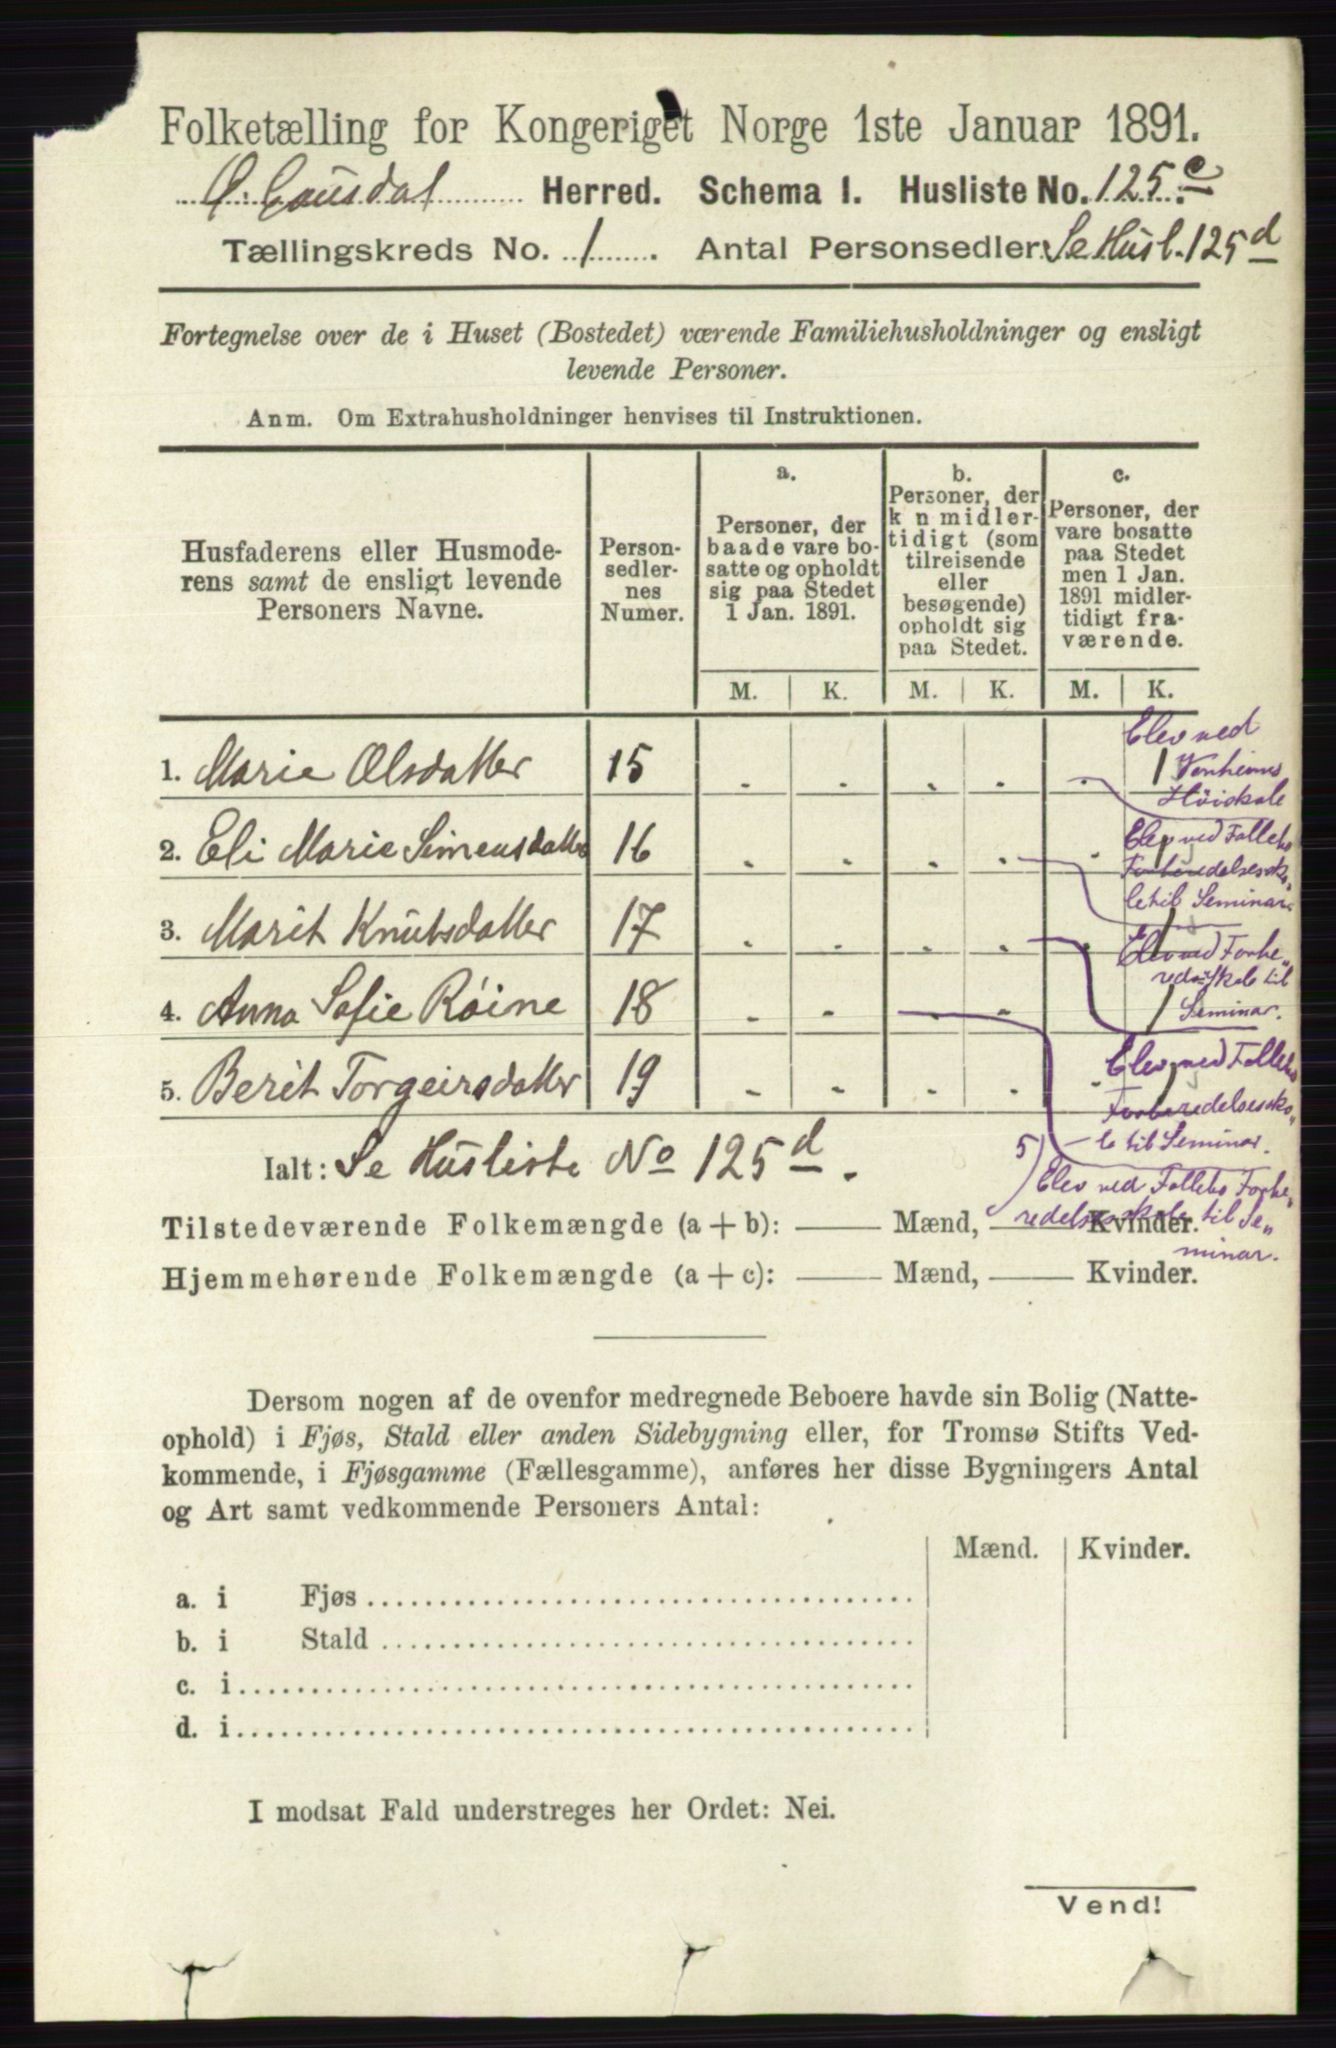 Folketælling for Kongeriget Norge 1ste Januar 1891.
Ø. Gausdal Herred. Schema 1. Husliste No. 125 c
Tællingskreds No. 1. Antal Personsedler: Se Husl. 125 d
Fortegnelse over de i Huset (Bostedet) værende Familiehusholdninger og ensligt
levende Personer.
Anm. Om Extrahusholdninger henvises til Instruktionen.
Husfaderens eller Husmode-
rens samt de ensligt levende
Personers Navne.
Person-
sedler-
nes
Numer.
a.
Personer, der
baade vare bo-
satte og opholdt
sig paa Stedet
1 Jan. 1891.
b.
Personer, der
k n midler-
tidigt (som
tilreisende
eller
besøgende)
opholdt sig
paa Stedet.
c.
Personer, der
vare bosatte
paa Stedet
men 1 Jan.
1891 midler-
tidigt fra-
værende.
M. K. M. K. M. K.
1. Marie Olsdatter 15 - - - - - 1
Elev ved
Vonheims
Höiskole
2. Eli Marie Simensdatter 16 - - - - - 1
Elev ved Folleks
Forberedelsessko-
le til Seminar
3. Marit Knutsdatter 17 - - - - - 1
Elev ved Forbe-
redelsskole til
Seminar.
4. Anna Sofie Röine 18 - - - - 1
Elev ved Folleks
Forberedelsessko-
le til Seminar.
5. Berit Torgeirsdatter 19 - - - - - 1
5) Elev ved Folleks Forbe-
redelsesskole til Se-
minar.
Ialt: Se Husliste No 125 d.
Tilstedeværende Folkemængde (a + b): —— Mænd, —— Kvinder.
Hjemmehørende Folkemængde (a + c): —— Mænd, —— Kvinder.
Dersom nogen af de ovenfor medregnede Beboere havde sin Bolig (Natte-
ophold) i Fjøs, Stald eller anden Sidebygning eller, for Tromsø Stifts Ved-
kommende, i Fjøsgamme (Fællesgamme), anføres her disse Bygningers Antal
og Art samt vedkommende Personers Antal:
Mænd. Kvinder.
a. i Fjøs
b. i Stald
c. i
d. i
I modsat Fald understreges her Ordet: Nei.
Vend!